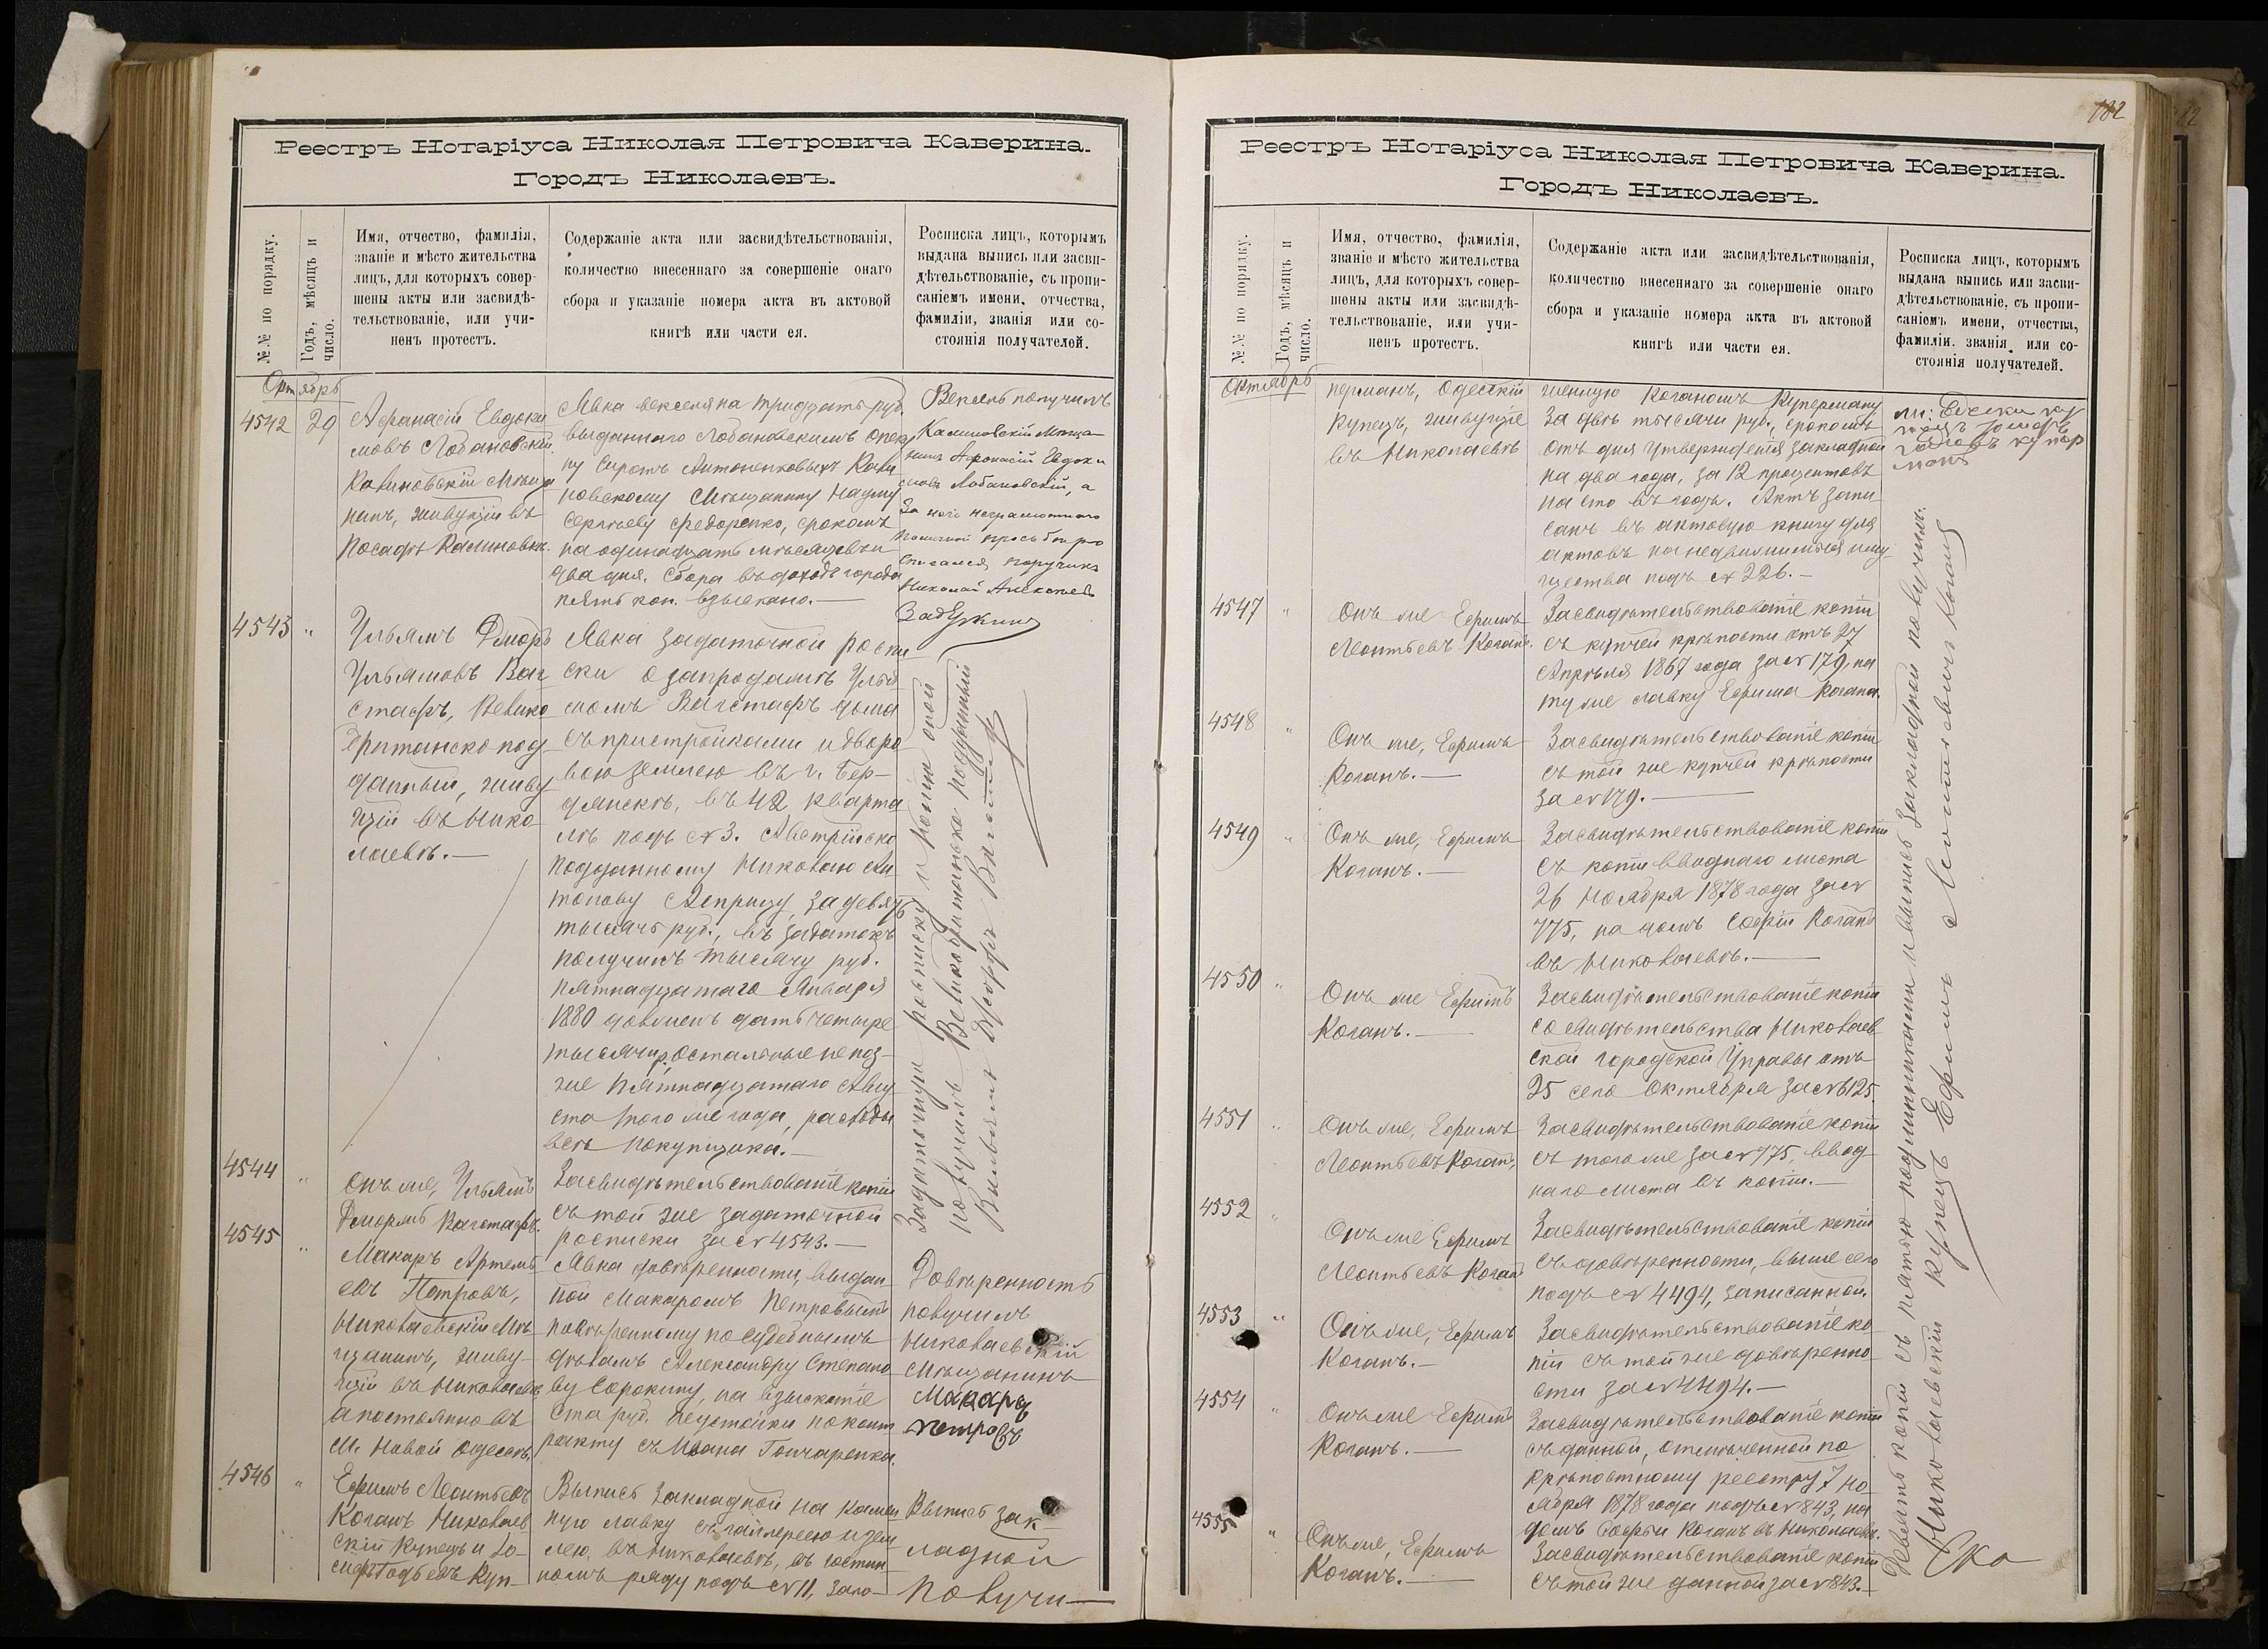 Реестръ Нотаріуса Николая Петровича Каверина.
Городъ Николаевъ.
№.№ по порядку.
Годъ, мѣсяцъ и
число.
Имя, отчество, фамилія,
званіе и мѣсто жительства
лицъ, для которыхъ совер-
шены акты или засвидѣ-
тельствованіе, или учи-
ненъ протестъ.
Содержаніе акта или засвидѣтельствованія,
количество внесеннаго за совершеніе онаго
сбора и указаніе номера акта въ актовой
книгѣ или части ея.
Росписка лицъ, которымъ
выдана выпись или засви-
дѣтельствованіе, съ пропи-
саніемъ имени, отчества,
фамиліи, званія или со-
стоянія получателей.
Октябрь
4542
29
Афанасій Евдоки
мовъ Лобановскій
Калиновскій мѣща
нинъ, живущій въ
посадѣ Калиновкѣ.
Явка векселя на тридцать руб.
выданнаго Лобановскимъ опеку
ну сиротъ Антоненковыхъ Кали
новскому мѣщанину Науму
Сергѣеву Федоренко, срокомъ
на одинадцать мѣсяцевъ и
два дня. Сбора въ доходъ города
пять коп. взыскано.—
Вексель получилъ
Калиновскій мѣща-
нинъ Афонасій Евдоки
мовъ Лобановскій, а
за него неграмотнаго
по личной прозьбѣ ро
списался поручикъ
Николай Алексѣевъ
4543
"
Ульямъ Джоръ
Ульямовъ Ваг
стафъ, Велико
британско под
данный, живу
щій въ Нико
лаевѣ.—
Явка задаточной роспи
ски о запродажѣ Улья
момъ Вагстафъ дома
съ пристройками и дворо
вою землею въ г. Бер-
дянскѣ, въ 42 кварта
лѣ подъ № 3. Австрійско
подданному Николаю Ан
тонову Леприцу, за девять
тысячъ руб., въ задатокъ
получилъ тысячу руб.
пятнадцатаго Января
1880 долженъ дать четыре
тысячи р. остальные не поз-
же пятнадцатаго Авгу
ста того же года, расходы
всѣ покупщика.—
Задаточную росписку и копіи оной
получилъ Великобританско подданный
Вильямъ Джоржъ Вагстафъ
4544
"
Онъ же, Ульямъ
Джоржъ Вагстафъ.
Засвидѣтельствованіе копіи
съ той же задаточной
росписки за № 4543.—
4545
"
Макаръ Артемь
евъ Петровъ,
Николаевскій мѣ
щанинъ, живу-
щій въ Николаевѣ
а постоянно въ
м. Новой Одессѣ.
Явка довѣренности, выдан
ной Макаромъ Петровымъ
повѣренному по судебнымъ
дѣламъ Александру Степано
ву Сорокину, на взысканіе
ста руб. неустойки по конт
ракту съ Ивана Гончаренка.
Довѣренность
получилъ
Николаевскій
мѣщанинъ
Макаръ
петровъ
4546
"
Ефимъ Леонтьевъ
Коганъ Николаев
скій купецъ и Іо-
сифъ Гадьевъ Куп-
Выпись закладной на камен
ную лавку съ галлереею и зем
лею, въ Николаевѣ, въ гостин
номъ ряду подъ № 11, зало-
Выпись зак-
ладной
получи-
182
Реестръ Нотаріуса Николая Петровича Каверина.
Городъ Николаевъ.
№.№ по порядку.
Годъ, мѣсяцъ и
число.
Имя, отчество, фамилія,
званіе и мѣсто жительства
лицъ, для которыхъ совер-
шены акты или засвидѣ-
тельствованіе, или учи-
ненъ протестъ.
Содержаніе акта или засвидѣтельствованія,
количество внесеннаго за совершеніе онаго
сбора и указаніе номера акта въ актовой
книгѣ или части ея.
Росписка лицъ, которымъ
выдана выпись или засви-
дѣтельствованіе, съ пропи-
саніемъ имени, отчества,
фамиліи. званія или со-
стоянія получателей.
Октябрь
перманъ, Одесскій
купецъ, живущіе
въ Николаевѣ
женную Коганомъ Куперману
за двѣ тысячи руб., срокомъ
отъ дня утвержденія закладной
на два года, за 12 процентовъ
на сто въ годъ. Актъ запи
санъ въ актовую книгу для
актовъ на недвижимыя иму
щества подъ № 226.—
ли: Одески ку
пецъ
купер
манъ
4547
"
Онъ же Ефимъ
Леонтьевъ Коганъ.
Засвидѣтельствованіе копіи
съ купчей крѣпости отъ 27
Апрѣля 1867 года за № 179, на
ту же лавку Ефима Когана.
4548
"
Онъ же, Ефимъ
Коганъ.—
Засвидѣтельствованіе копіи
съ той же купчей крѣпости
за № 179.—
4549
"
Онъ же, Ефимъ
Коганъ.—
Засвидѣтельствованіе копіи
съ копіи вводнаго листа
26 Ноября 1878 года за №
775, на домъ Софіи Коганъ
въ Николаевѣ.—
4550
"
Онъ же Ефимъ
Коганъ.—
Засвидѣтельствованіе копіи
со свидѣтельства Николаев
ской городской Управы отъ
25 сего Октября за № 6125.
4551
"
Онъ же, Ефимъ
Леонтьевъ Коганъ,
Засвидѣтельствованіе копіи
съ того же за № 775, ввод
наго листа въ копіи.—
4552
"
Онъ же Ефимъ
Леонтьевъ Коганъ
Засвидѣтельствованіе копіи
съ довѣренности, выше сего
подъ № 4494, записанной.
4553
"
Онъ же, Ефимъ
Коганъ.—
Засвидѣтельствованіе ко
піи съ той же довѣренно
сти за № 4494.—
4554
"
Онъ же Ефимъ
Коганъ.—
Засвидѣтельствованіе копіи
съ данной, отмѣченной по
крѣпостному реестру 7 Но
ября 1878 года подъ № 843, на
домъ Софьи Коганъ въ Николаевѣ.
4555
"
Онъ же, Ефимъ
Коганъ.—
Засвидѣтельствованіе копіи
съ той же данной за № 843.—
Девять копій съ пятью подлинниками и выпись закладной получилъ:
Николаевскій Купецъ Ефимъ Леонтьевичъ Коганъ